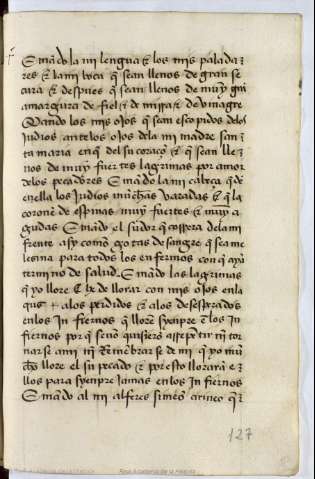 E mando la mi lengua & los mis palada
res & la mi boca que sean llenos de gran se
cura & despues que sean llenos de muy grā
amargura de fiel & de mirra & de vinagre
Mando los mis ojos que sean escopidos de los
judios ante los ojos de la mi madre san
ta maria en que del su coraçō & que sean lle
nos de muy fuertes lagrimas por amor
de los pecadores E mando la mi cabeça que dē
en ella los judios muchas varadas & que la
coronē de espinas muy fuertes & muy a
gudas E mando el sudor que correra de la mi
frente asy como gotas de sangre que sea me
lesina para todos los enfermos con que ayā
termino de salud E mando las lagrimas
que yo llore de llorar con mis ojos en la
a los perdidos & a los desesperados
en los infiernos que llorē syenpre ē los in
fiernos por que se nō quisierō arrepētir nī tor
narse a mi nī remēbrarse de mi que yo mu
cho llore el su pecado & por esto lloraran e
llos para syenpre jamas en los infiernos
E mando al mi alferes simeō
127
Real Academia de la Historia